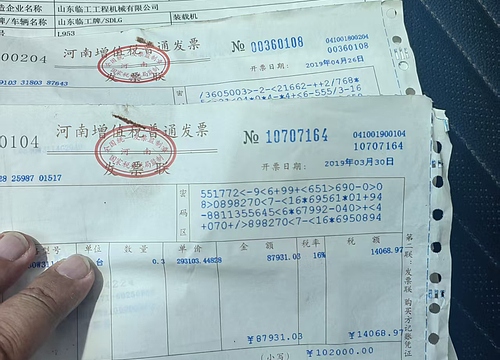 造企业名称 山东临工工程机械有限公司
牌/车辆名称 山东临工牌/SDLG 装载机
L953
00204 河南增值税普通发票 № 00360108 041001800204
00360108
开票日期: 2019年04月26日
79103 31803 87643
发票联
密
/3605003>-2-<21662-++2/768*
0104 河南增值税普通发票 № 10707164 041001900104
10707164
发票联
开票日期: 2019年03月30日
28 25987 01517
密码区
551772-<9<6+99+<651>690-0>0
8>0898270<7-<16*69561*01+94
-8811355645<6*67992-040>+<4
+070+/>898270<7-<16*6950894
型号 单位 数量 单价 金额 税率 税额
台 0.3 293103.44828 87931.03 16% 14068.97
¥87931.03 ¥14068.97
(小写) ¥102000.00
第二联:发票联 购买方记账凭证